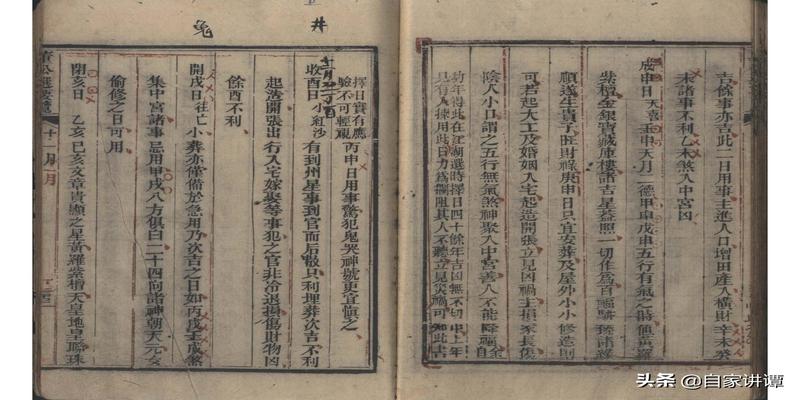 吉餘事亦吉此二日用事主進人口增田產入橫財辛未癸
未諸事不利乙未煞入中宮凶
成申日天喜壬申天月二德甲申戊申五行有氣之時値黃羅
紫檀金銀寶藏庫樓諸吉星蓋照一切作為百福駢臻諸
順遂生貴子旺財祿庚申日只宜安葬及屋外小小修造則
可若起大工及婚姻入宅起造開張立見凶禍主損家長傷
陰人小口謂之五行無氣煞神聚入中宮善人不能降福
只有人揀用此日力為攔阻其人不聽立見災禍可知此書
擇日實有應
驗不可輕視
丙申日用事驚犯鬼哭神號更宜愼之
十一月
收酉日小紅沙
有到州星事到官而后散只利埋葬次吉不利
起造開張出行入宅嫁娶等事犯之官非冷退損傷財物凶
餘酉不利
開戌日往亡小葬亦僅備於急用乃次吉之日如丙戌壬戌煞
集中宮諸事忌用甲戌八方俱白二十四向諸神朝天元女
偷修之日可用
閉亥日乙亥己亥文章貴顯之星黃羅紫檀天皇地皇聯珠
董公選要覽
十一月
井
兔
头条 @自家讲谭